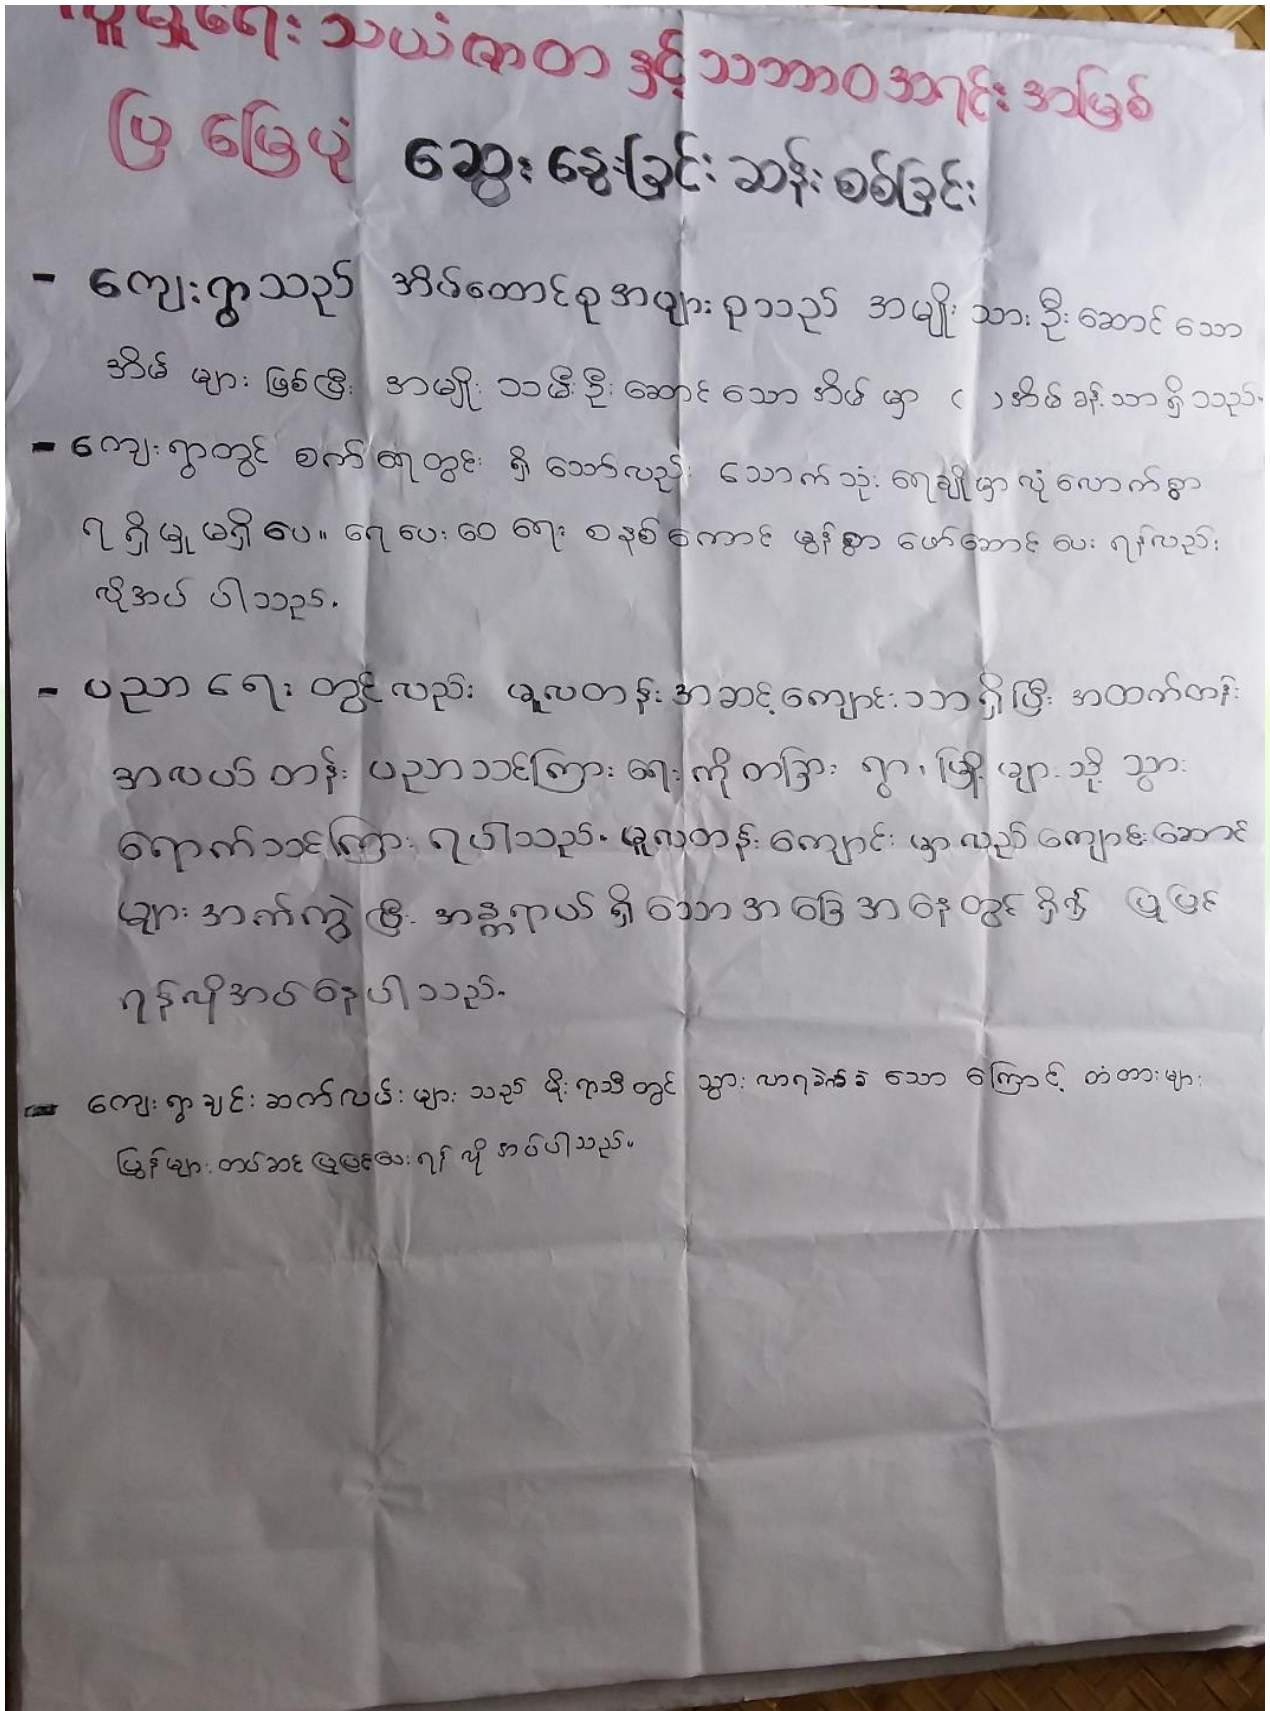 လူမှုရေး သယံဇာတ နှင့် သဘာဝအရင်း အမြစ်
ပြ မြေပုံ ဆွေးနွေးခြင်း ဆန်းစစ်ခြင်း
- ကျေးရွာသည် အိမ်ထောင်စုအများစုသည် အမျိုးသားဦးဆောင်သော
အိမ်များဖြစ်ပြီး အမျိုးသမီးဦးဆောင်သောအိမ်မှာ ( ) အိမ်ခန့်သာရှိသည်.
- ကျေးရွာတွင် စက်ရေတွင်း ရှိသော်လည်း သောက်သုံးရေချိုမှာလုံလောက်စွာ
ရရှိမှုမရှိပေ။ ရေပေးဝေရေး စနစ်ကောင်းမွန်စွာ ဖော်ဆောင်ပေးရန်လည်း
လိုအပ်ပါသည်.
- ပညာရေးတွင်လည်း မူလတန်းအဆင့်ကျောင်းသာရှိပြီး အထက်တန်း
အလယ်တန်း ပညာသင်ကြားရေးကိုတခြားရွာ၊ မြို့များသို့သွား
ရောက်သင်ကြားရပါသည်. မူလတန်းကျောင်းမှာလည်းကျောင်းဆောင်
များအက်ကွဲပြီး အန္တရာယ်ရှိသောအခြေအနေတွင်ရှိ၍ ပြုပြင်
ရန်လိုအပ်နေပါသည်.
- ကျေးရွာချင်းဆက်လမ်းများသည် မိုးရာသီတွင် သွားလာရခက်ခဲသောကြောင့် တံတားများ
ပြွန်များတပ်ဆင်ပြုပြင်ပေးရန်လိုအပ်ပါသည်။